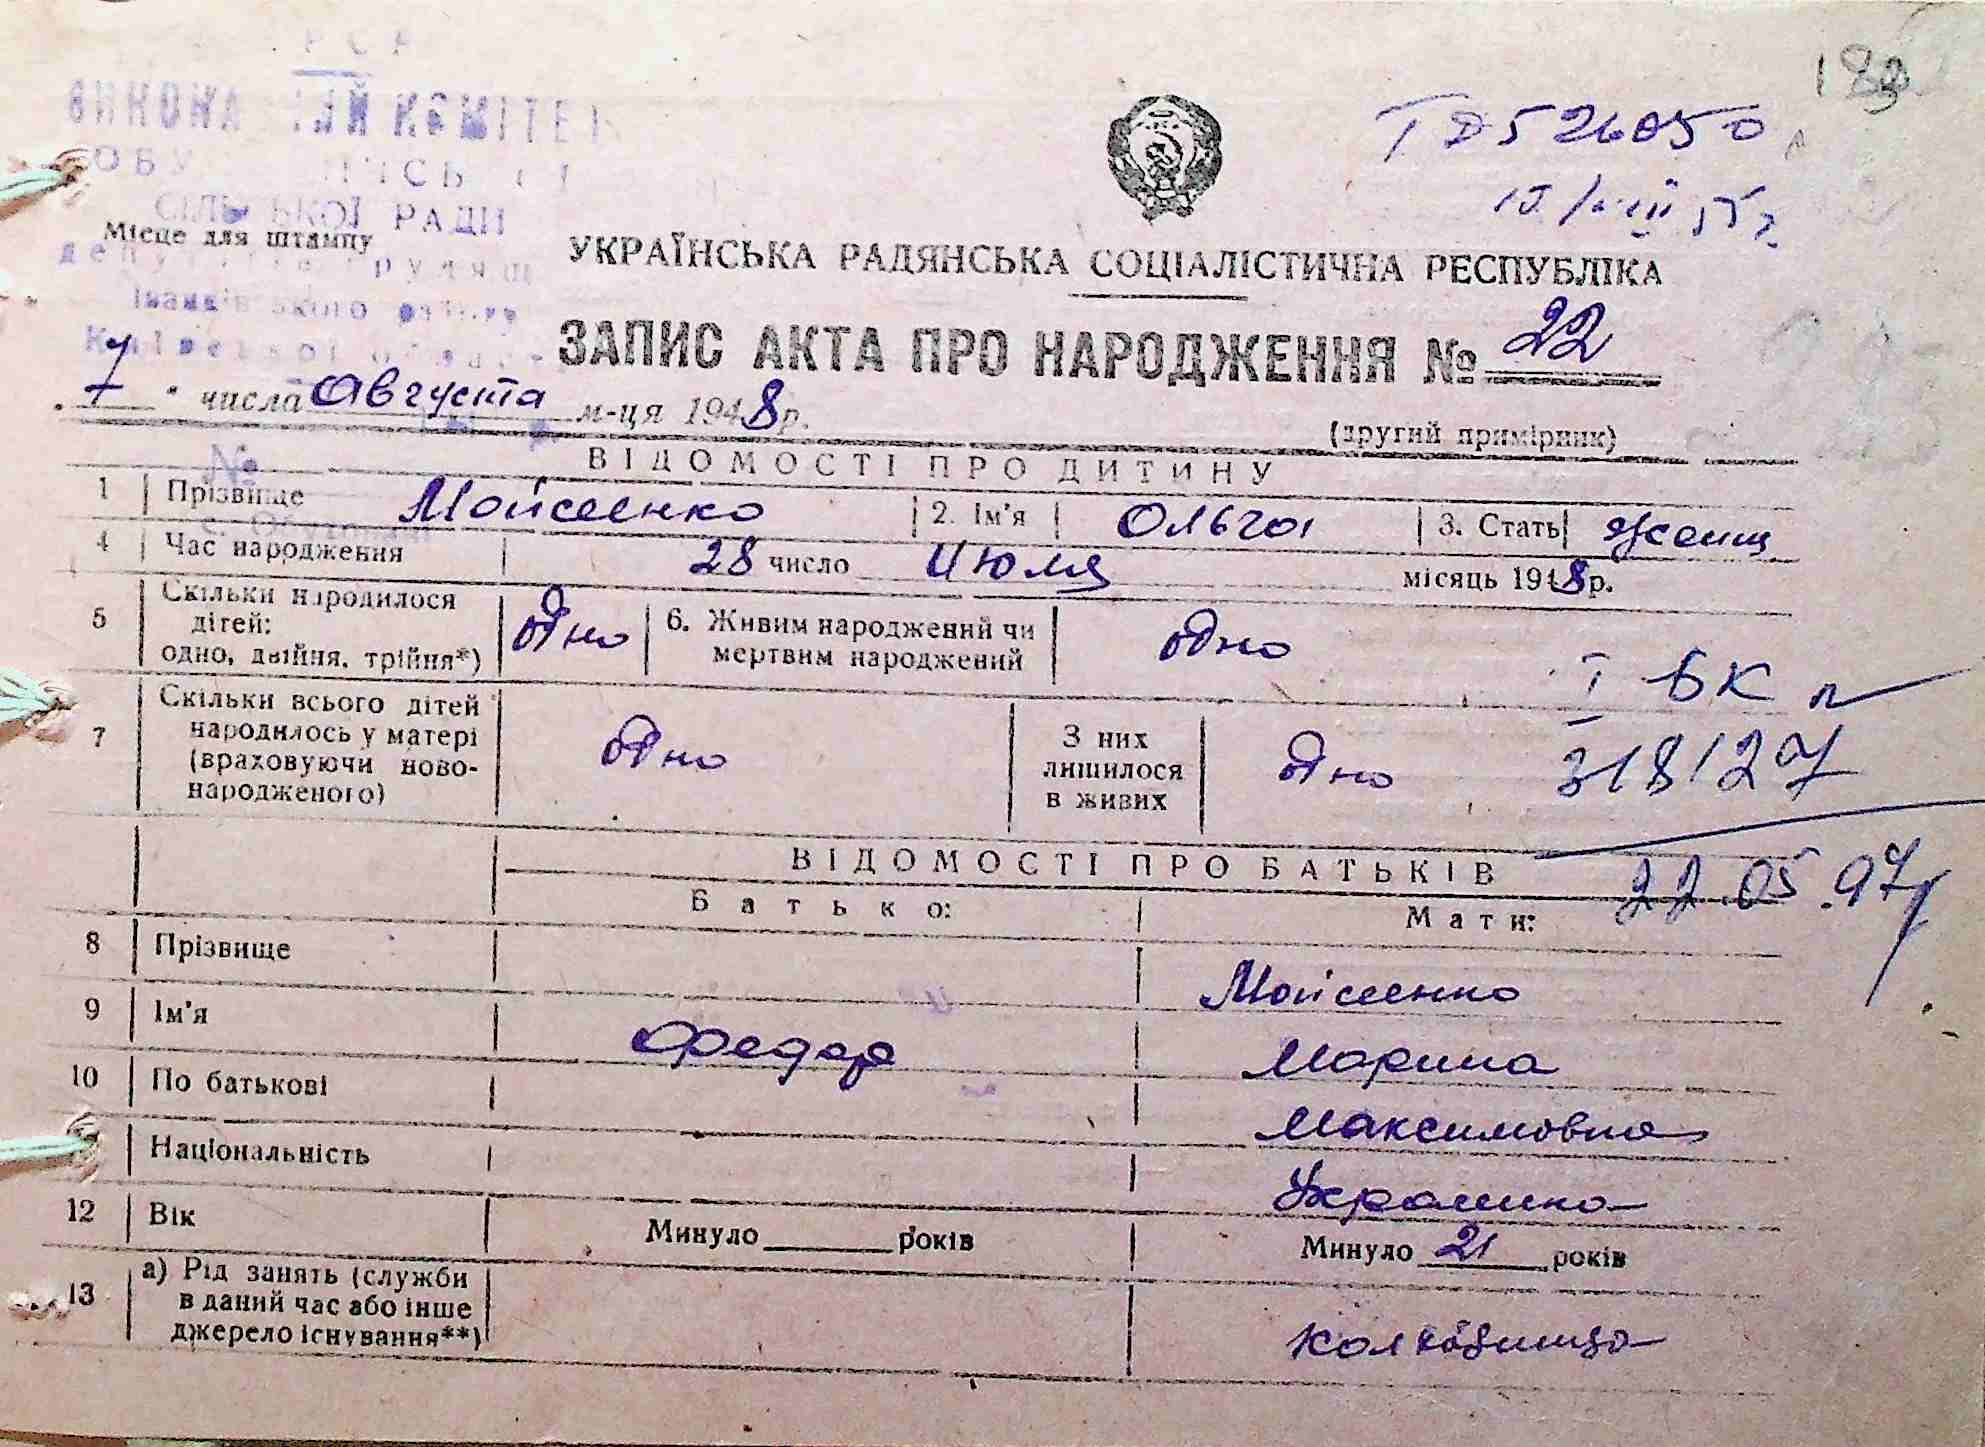 РСР
ВИКОНА ЧИЙ КОМІТЕТ
СІЛЬСЬКОЇ РАДИ
Місце для штампу
депутатів трудящ
Іванківського району
Київської област
ТД 526050
УКРАЇНСЬКА РАДЯНСЬКА СОЦІАЛІСТИЧНА РЕСПУБЛІКА
ЗАПИС АКТА ПРО НАРОДЖЕННЯ № 22
"7" числа Августа м-ця 1948 р.
(другий примірник)
№
ВІДОМОСТІ ПРО ДИТИНУ
1 Прізвище Мойсеенко 2. Ім'я Ольга 3. Стать женщ
4 Час народження 28 число Июля місяць 1948 р.
5 Скільки народилося дітей: одно, двійня, трійня*) одно 6. Живим народжений чи мертвим народжений одно
І БК
7 Скільки всього дітей народилось у матері (враховуючи новонародженого) одно З них лишилося в живих одно
318127
ВІДОМОСТІ ПРО БАТЬКІВ
22.05.97
Батько: Мати:
8 Прізвище Мойсеенко
9 Ім'я Федор Марина
10 По батькові Максимовна
Національність Украинка
12 Вік Минуло років Минуло 21 років
13 а) Рід занять (служби в даний час або інше джерело існування**) колхозница